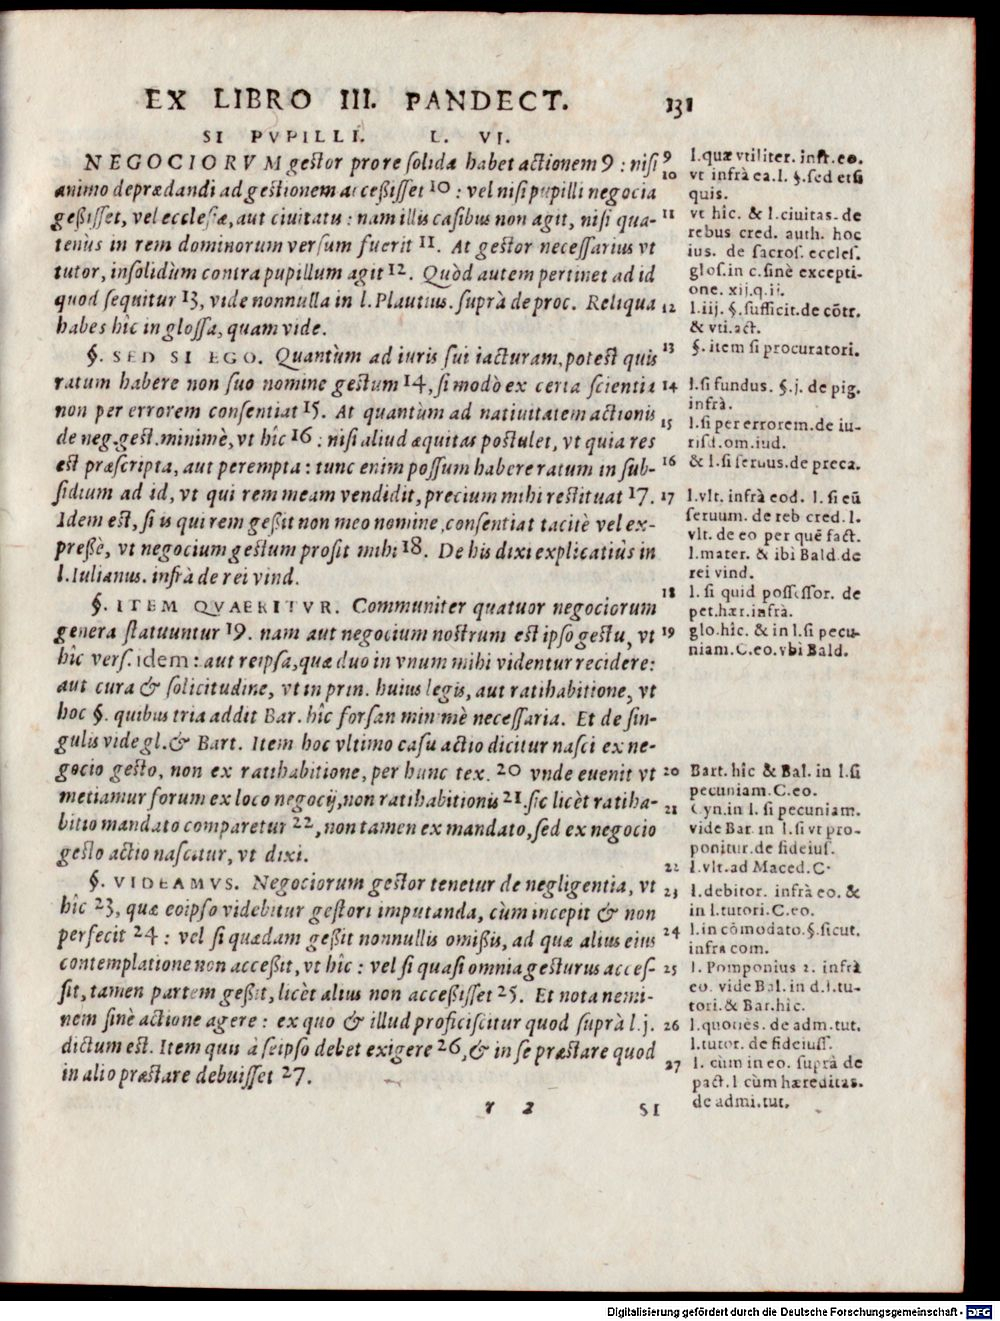 EX LIBRO III. PANDECT. 131
SI PVPILLI. L. VI.
NEGOCIORVM gestor pro re solida habet actionem 9 : nisi
animo deprædandi ad gestionem accessisset 10 : vel nisi pupilli negocia
gessisset, vel ecclesiæ, aut ciuitatis : nam illis casibus non agit, nisi qua-
tenùs in rem dominorum versum fuerit 11. At gestor necessarius vt
tutor, insolidùm contra pupillum agit 12. Quòd autem pertinet ad id
quod sequitur 13, vide nonnulla in l. Plautius. suprà de proc. Reliqua
habes hîc in glossa, quam vide.
§. SED SI EGO. Quantùm ad iuris sui iacturam, potest quis
ratum habere non suo nomine gestum 14, si modò ex certa scientia
non per errorem consentiat 15. At quantùm ad natiuitatem actionis
de neg. gest. minimè, vt hîc 16 : nisi aliud æquitas postulet, vt quia res
est præscripta, aut perempta : tunc enim possum habere ratum in sub-
sidium ad id, vt qui rem meam vendidit, precium mihi restituat 17.
Idem est, si is qui rem gessit non meo nomine, consentiat tacitè vel ex-
pressè, vt negocium gestum prosit mihi 18. De his dixi explicatiùs in
l. Iulianus. infrà de rei vind.
§. ITEM QVAERITVR. Communiter quatuor negociorum
genera statuuntur 19. nam aut negocium nostrum est ipso gestu, vt
hîc vers. idem : aut reipsa, quæ duo in vnum mihi videntur recidere:
aut cura & solicitudine, vt in prin. huius legis, aut ratihabitione, vt
hoc §. quibus tria addit Bar. hîc forsan minimè necessaria. Et de sin-
gulis vide gl. & Bart. Item hoc vltimo casu actio dicitur nasci ex ne-
gocio gesto, non ex ratihabitione, per hunc tex. 20 vnde euenit vt
metiamur forum ex loco negocij, non ratihabitionis 21. sic licèt ratiha-
bitio mandato comparetur 22, non tamen ex mandato, sed ex negocio
gesto actio nascitur, vt dixi.
§. VIDEAMVS. Negociorum gestor tenetur de negligentia, vt
hîc 23, quæ eoipso videbitur gestori imputanda, cùm incepit & non
perfecit 24 : vel si quædam gessit nonnullis omissis, ad quæ alius eius
contemplatione non accessit, vt hîc : vel si quasi omnia gesturus acces-
sit, tamen partem gessit, licèt alius non accessisset 25. Et nota nemi-
nem sinè actione agere : ex quo & illud proficiscitur quod suprà l. j.
dictum est. Item quis à seipso debet exigere 26, & in se præstare quod
in alio præstare debuisset 27.
r 2 SI
9 l. quæ vtiliter. inst. eo.
10 vt infrà ea. l. §. sed etsi
quis.
11 vt hîc. & l. ciuitas. de
rebus cred. auth. hoc
ius. de sacros. eccles.
glos. in c. sinè excepti-
one. xij. q. ij.
12 l. iij. §. sufficit. de cõtr.
& vti. act.
13 §. item si procuratori.
14 l. si fundus. §. j. de pig.
infrà.
15 l. si per errorem. de iu-
risd. om. iud.
16 & l. si seruus. de preca.
17 l. vlt. infrà eod. l. si eũ
seruum. de reb cred. l.
vlt. de eo per quẽ fact.
l. mater. & ibi Bald. de
rei vind.
18 l. si quid possessor. de
pet. hær. infrà.
19 glo. hîc. & in l. si pecu-
niam. C. eo. vbi Bald.
20 Bart. hîc & Bal. in l. si
pecuniam. C. eo.
21 Cyn. in l. si pecuniam.
vide Bar. in l. si vt pro-
ponitur. de fideius.
22 l. vlt. ad Maced. C.
23 l. debitor. infrà eo. &
in l. tutori. C. eo.
24 l. in cõmodato. §. sicut.
infrà com.
25 l. Pomponius 2. infrà
eo. vide Bal. in d. l. tu-
tori. & Bar. hîc.
26 l. quoties. de adm. tut.
l. tutor. de fideiuss.
27 l. cùm in eo. suprà de
pact. l cùm hæreditas.
de admi. tut.
Digitalisierung gefördert durch die Deutsche Forschungsgemeinschaft - DFG